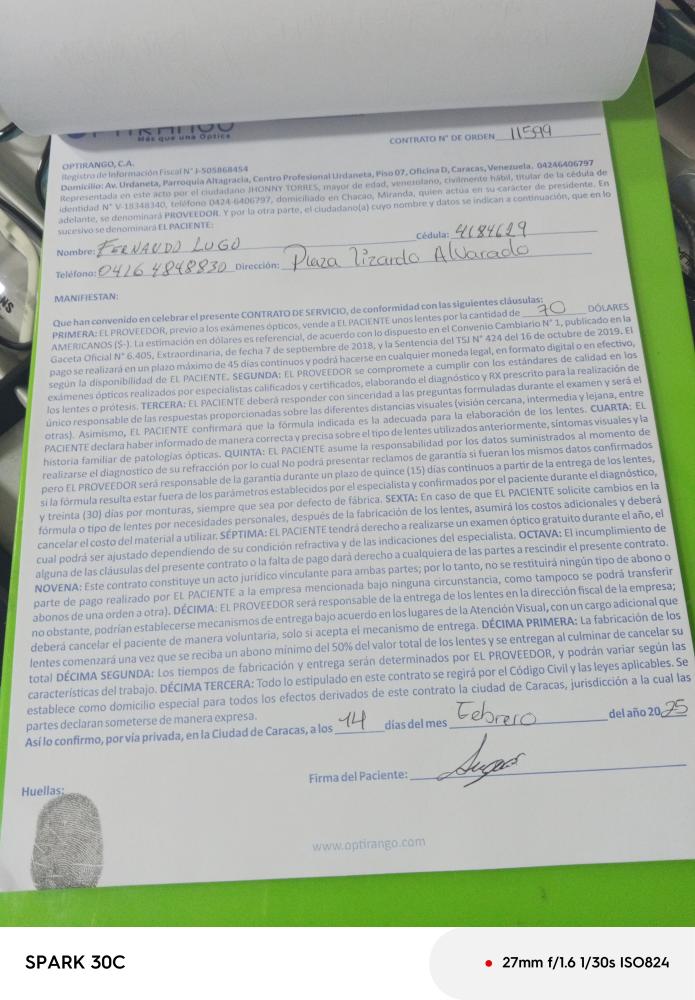 OPTIRANGO
Más que una Óptica
CONTRATO N° DE ORDEN 11599
OPTIRANGO, C.A.
Registro de Información Fiscal N° J-505868454
Domicilio: Av. Urdaneta, Parroquia Altagracia, Centro Profesional Urdaneta, Piso 07, Oficina D, Caracas, Venezuela. 04246406797
Representada en este acto por el ciudadano JHONNY TORRES, mayor de edad, venezolano, civilmente hábil, titular de la cédula de
identidad N° V-18348340, teléfono 0424-6406797, domiciliado en Chacao, Miranda, quien actúa en su carácter de presidente. En
adelante, se denominará PROVEEDOR. Y por la parte, el ciudadano(a) cuyo nombre y datos se indican a continuación, que en lo
sucesivo se denominará EL PACIENTE:
Nombre: FERNANDO LUGO Cédula: 4184629
Teléfono: 0416 4848830 Dirección: Plaza Lizardo Alvarado
MANIFIESTAN:
Que han convenido en celebrar el presente CONTRATO DE SERVICIO, de conformidad con las siguientes cláusulas:
PRIMERA: EL PROVEEDOR, previo a los exámenes ópticos, vende a EL PACIENTE unos lentes por la cantidad de 70 DÓLARES
AMERICANOS ($-). La estimación en dólares es referencial, de acuerdo con lo dispuesto en el Convenio Cambiario N° 1, publicado en la
Gaceta Oficial N° 6.405, Extraordinaria, de fecha 7 de septiembre de 2018, y la Sentencia del TSJ N° 424 del 16 de octubre de 2019. El
pago se realizará en un plazo máximo de 45 días continuos y podrá hacerse en cualquier moneda legal, en formato digital o en efectivo,
según la disponibilidad de EL PACIENTE. SEGUNDA: EL PROVEEDOR se compromete a cumplir con los estándares de calidad en los
exámenes ópticos realizados por especialistas calificados y certificados, elaborando el diagnóstico y RX prescrito para la realización de
los lentes o prótesis. TERCERA: EL PACIENTE deberá responder con sinceridad a las preguntas formuladas durante el examen y será el
único responsable de las respuestas proporcionadas sobre las diferentes distancias visuales (visión cercana, intermedia y lejana, entre
otras). Asimismo, EL PACIENTE confirmará que la fórmula indicada es la adecuada para la elaboración de los lentes. CUARTA: EL
PACIENTE declara haber informado de manera correcta y precisa sobre el tipo de lentes utilizados anteriormente, síntomas visuales y la
historia familiar de patologías ópticas. QUINTA: EL PACIENTE asume la responsabilidad por los datos suministrados al momento de
realizarse el diagnostico de su refracción por lo cual No podrá presentar reclamos de garantía si fueran los mismos datos confirmados
pero EL PROVEEDOR será responsable de la garantía durante un plazo de quince (15) días continuos a partir de la entrega de los lentes,
si la fórmula resulta estar fuera de los parámetros establecidos por el especialista y confirmados por el paciente durante el diagnóstico,
y treinta (30) días por monturas, siempre que sea por defecto de fábrica. SEXTA: En caso de que EL PACIENTE solicite cambios en la
fórmula o tipo de lentes por necesidades personales, después de la fabricación de los lentes, asumirá los costos adicionales y deberá
cancelar el costo del material a utilizar. SÉPTIMA: EL PACIENTE tendrá derecho a realizarse un examen óptico gratuito durante el año, el
cual podrá ser ajustado dependiendo de su condición refractiva y de las indicaciones del especialista. OCTAVA: El incumplimiento de
alguna de las cláusulas del presente contrato o la falta de pago dará derecho a cualquiera de las partes a rescindir el presente contrato.
NOVENA: Este contrato constituye un acto jurídico vinculante para ambas partes; por lo tanto, no se restituirá ningún tipo de abono o
parte de pago realizado por EL PACIENTE a la empresa mencionada bajo ninguna circunstancia, como tampoco se podrá transferir
abonos de una orden a otra). DÉCIMA: EL PROVEEDOR será responsable de la entrega de los lentes en la dirección fiscal de la empresa;
no obstante, podrían establecerse mecanismos de entrega bajo acuerdo en los lugares de la Atención Visual, con un cargo adicional que
deberá cancelar el paciente de manera voluntaria, solo si acepta el mecanismo de entrega. DÉCIMA PRIMERA: La fabricación de los
lentes comenzará una vez que se reciba un abono mínimo del 50% del valor total de los lentes y se entregan al culminar de cancelar su
total DÉCIMA SEGUNDA: Los tiempos de fabricación y entrega serán determinados por EL PROVEEDOR, y podrán variar según las
características del trabajo. DÉCIMA TERCERA: Todo lo estipulado en este contrato se regirá por el Código Civil y las leyes aplicables. Se
establece como domicilio especial para todos los efectos derivados de este contrato la ciudad de Caracas, jurisdicción a la cual las
partes declaran someterse de manera expresa.
Así lo confirmo, por vía privada, en la Ciudad de Caracas, a los 14 días del mes Febrero del año 2025
Firma del Paciente:
Huellas:
www.optirango.com
SPARK 30C
27mm f/1.6 1/30s ISO824